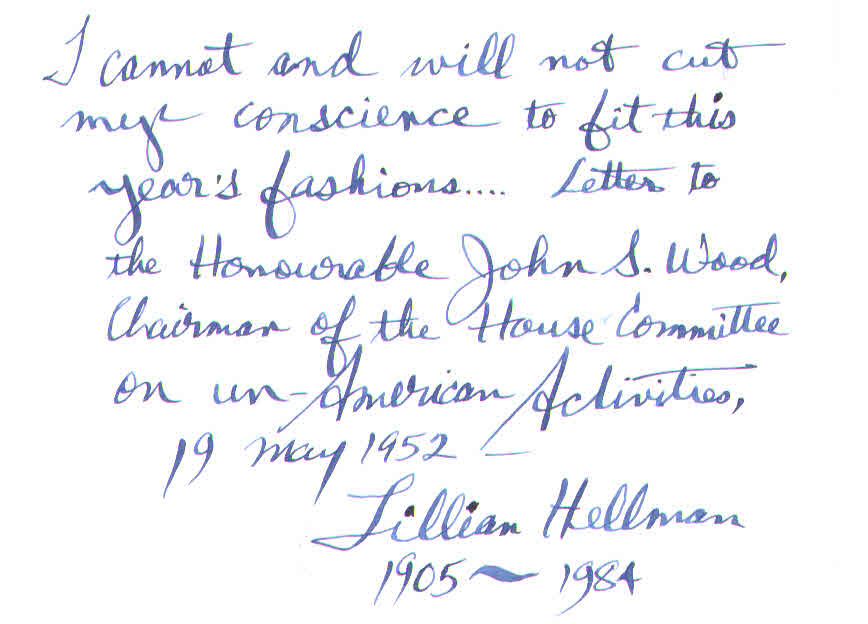 I cannot and will not cut
my conscience to fit this
year's fashions.... Letter to
the Honourable John S. Wood,
Chairman of the House Committee
on un-American Activities,
19 May 1952 —
Lillian Hellman
1905 ~ 1984